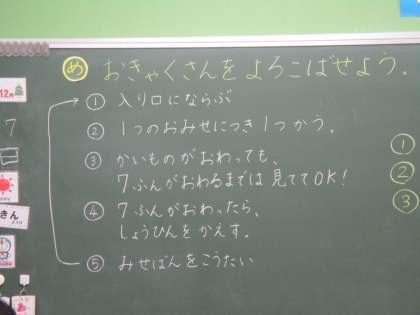 め おきゃくさんをよろこばせよう。
① 入り口にならぶ
② 1つのおみせにつき1つかう。
③ かいものがおわっても、
7ふんがおわるまでは見ててOK!
④ 7ふんがおわったら、
しょうひんをかえす。
⑤ みせばんをこうたい
12月
7
日
きん
①
②
③